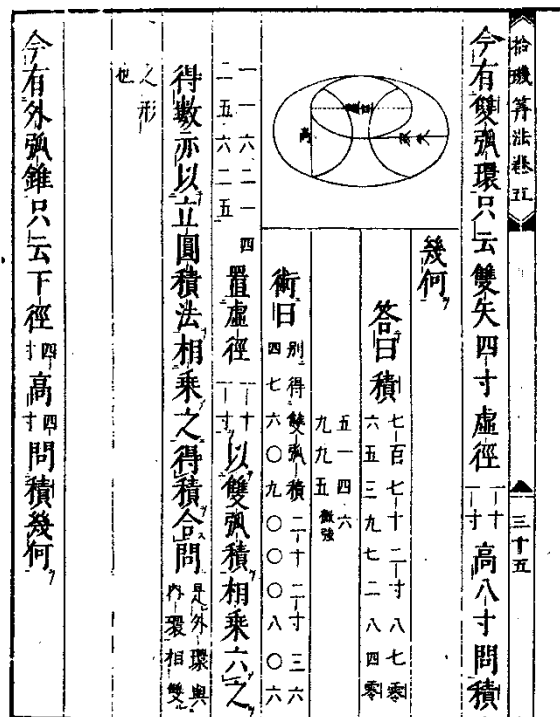 拾璣算法卷五 三十五
今有雙弧環只云雙矢四寸虛徑一十一寸高八寸問積
幾何
答曰積七百七十二寸八七零
六五三九七二八四零
五一四六
九九五微強
術曰別得雙弧積二十二寸三六
四七六〇九〇〇〇八〇六
一一六二一四
二五六二五
置虛徑一十一寸以雙弧積相乘六之
得數亦以立圓積法相乘之得積合問是外環與
內環相雙
之形
也
今有外弧錐只云下徑四寸高四寸問積幾何
高